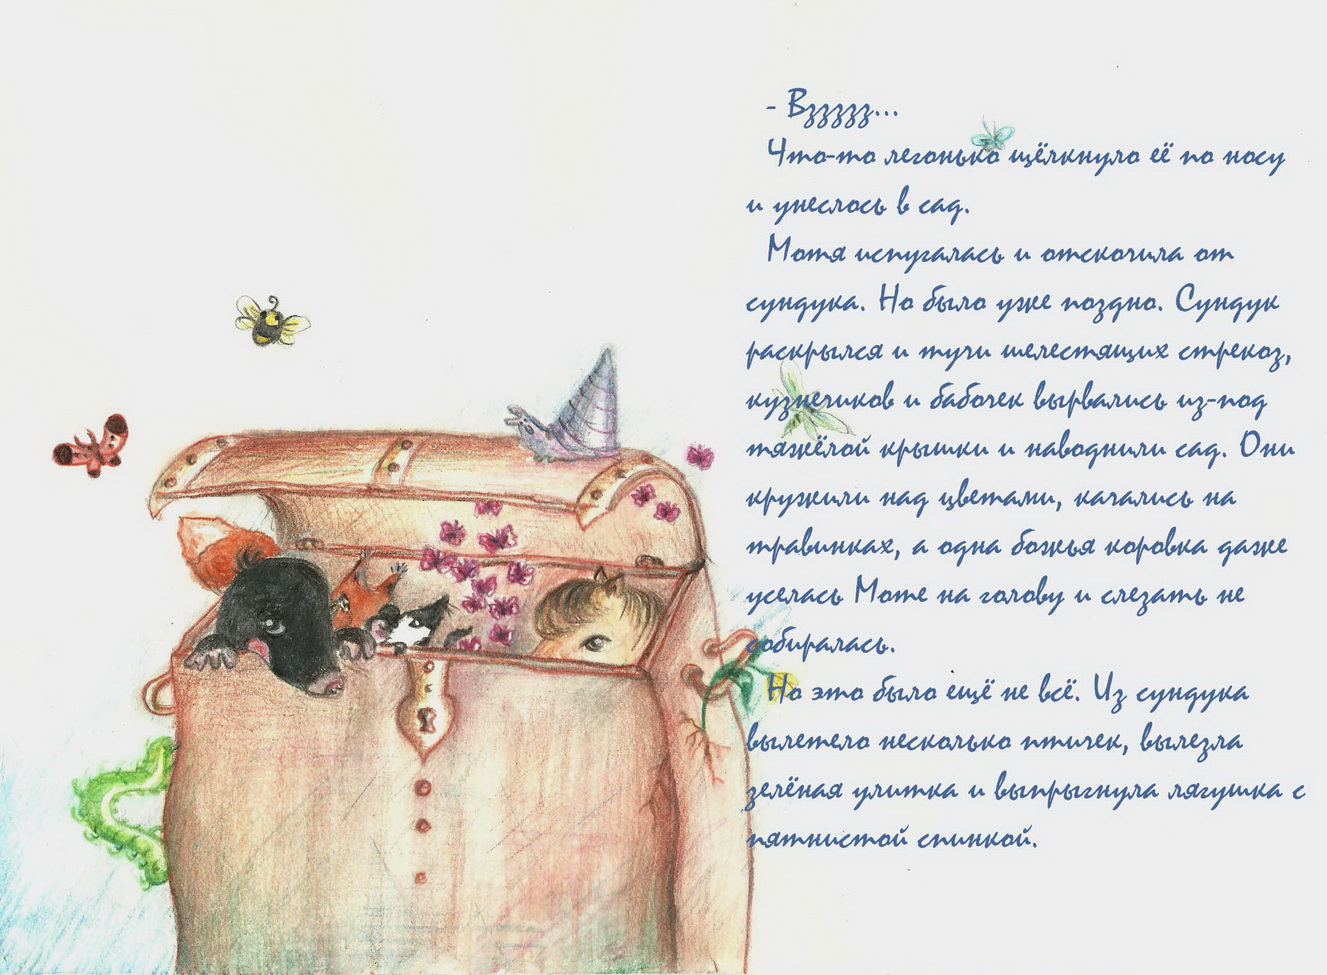 - Вззззз...
Что-то легонько щёлкнуло её по носу
и унеслось в сад.
Мотя испугалась и отскочила от
сундука. Но было уже поздно. Сундук
раскрылся и тучи шелестящих стрекоз,
кузнечиков и бабочек вырвались из-под
тяжёлой крышки и наводнили сад. Они
кружили над цветами, качались на
травинках, а одна божья коровка даже
уселась Моте на голову и слезать не
собиралась.
Но это было ещё не всё. Из сундука
вылетело несколько птичек, вылезла
зелёная улитка и выпрыгнула лягушка с
пятнистой спинкой.